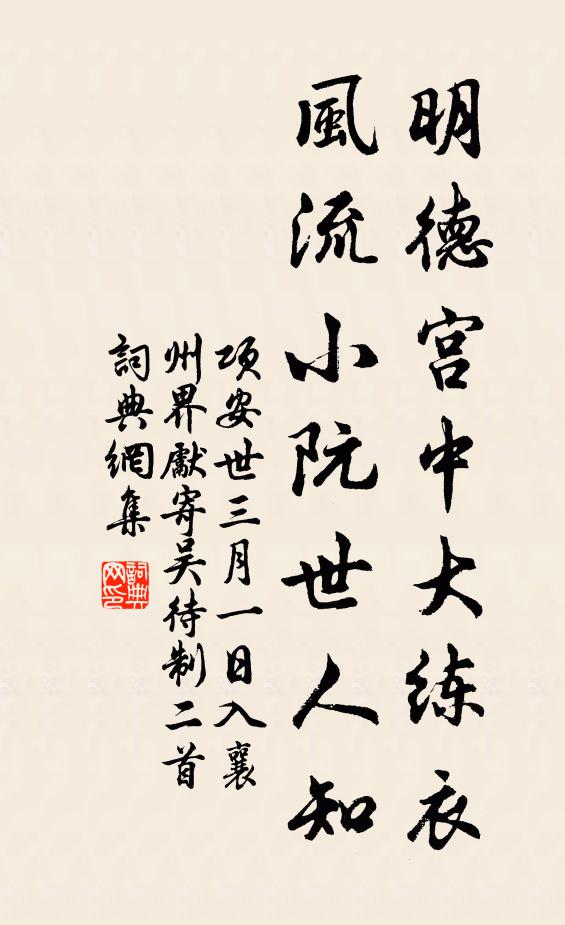 明德宫中大练衣
風流小阮世人知
项安世三月一日入襄
州界獻寄吴待制二首
詞典網集
詞典
网印